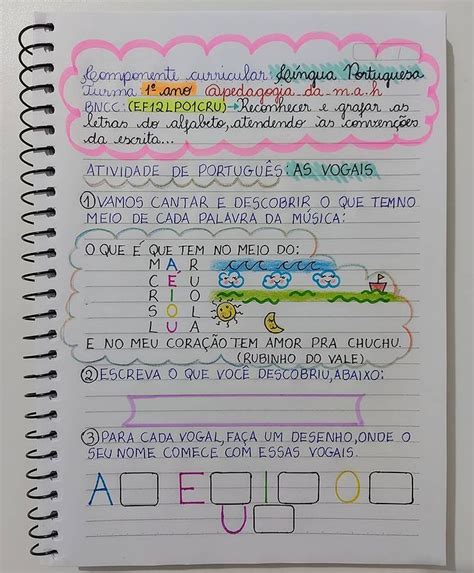 Componente curricular: Língua Portuguesa
Turma: 1º ano @pedagogia_da_m.a.h
BNCC: (EF12LP01CRU) → Reconhecer e grafar as
letras do alfabeto, atendendo às convenções
da escrita...
ATIVIDADE DE PORTUGUÊS: AS VOGAIS
① VAMOS CANTAR E DESCOBRIR O QUE TEMNO
MEIO DE CADA PALAVRA DA MÚSICA:
O QUE É QUE TEM NO MEIO DO:
MAR
CÉU
RIO
SOL
LUA
E NO MEU CORAÇÃO TEM AMOR PRA CHUCHU.
(RUBINHO DO VALE)
② ESCREVA O QUE VOCÊ DESCOBRIU, ABAIXO:
③ PARA CADA VOGAL, FAÇA UM DESENHO, ONDE O
SEU NOME COMECE COM ESSAS VOGAIS.
A E I O
U